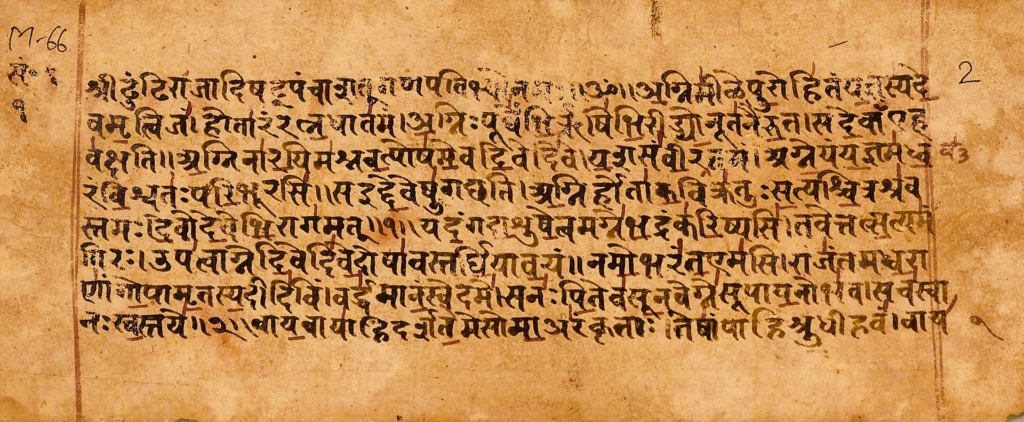 M-66
2
श्रीढुंढिराजादिषट्पंचा गणपतिभ्यो नमः ॥ ॐ ॥ अग्निमीळेपुरोहितंयज्ञस्यदे
वमृत्विजं। होतारंरत्नधातमं। अग्निःपूर्वेभिर्ऋषिभिरीड्योनूतनैरुत। सदेवाँएह
वक्षति॥ अग्निनारयिमश्नवत्पोषमेवदिवेदिवे। यशसंवीरवत्तमं। अग्नेयंयज्ञमध्व
रंविश्वतःपरिभूरसि॥ सइद्देवेषुगच्छति। अग्निर्होताकविक्रतुःसत्यश्चित्रश्रव
स्तमः। देवोदेवेभिरागमत्॥१॥ यदंगदाशुषेत्वमग्नेभद्रंकरिष्यसि। तवेत्तत्सत्यमं
गिरः। उपत्वाग्नेदिवेदिवेदोषावस्तर्धियावयं॥ नमोभरंतएमसि। राजंतमध्वरा
णांगोपामृतस्यदीदिविं। वर्द्धमानंस्वेदमे। सनःपितेवसूनवेग्नेसूपायनोभव। सचस्वा
नःस्वस्तये॥२॥ वायवायाहिदर्शतेमेसोमाअरंकृताः। तेषांपाहिश्रुधीहवं। वाय